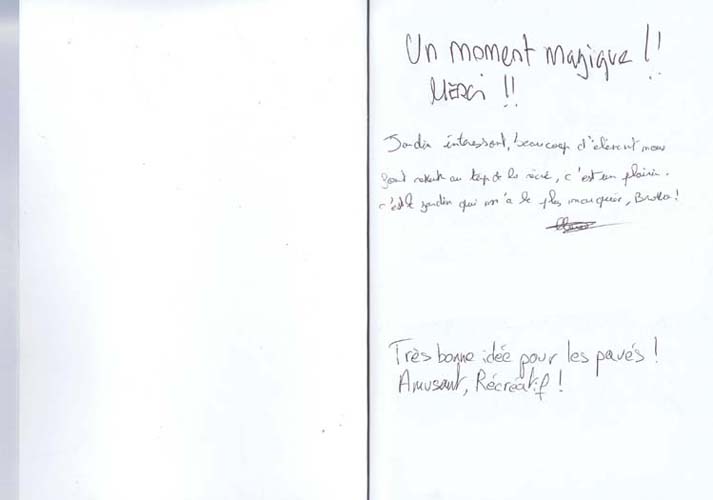 Un moment magique !!
Merci !!
Jardin intéressant, beaucoup d'élément nous
font au de la récré, c'est un plaisir.
c'est le jardin qui m'a le plus marquer, Bravo !
Très bonne idée pour les pavés !
Amusant, Récréatif !